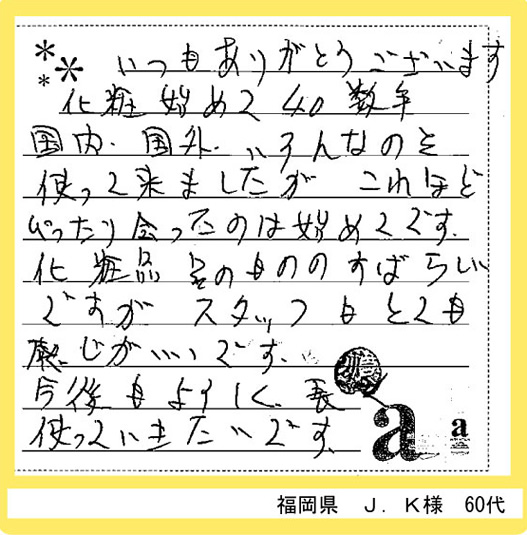 いつもありがとうございます
化粧始めて40数年
国内・国外・いろんなのを
使って来ましたが これほど
ぴったり合ったのは始めてです。
化粧品そのもののすばらしい
ですが スタッフもとても
感じがいいです。
今後もよろしく、長
使っていきたいです。
a
a
福岡県 J.K様 60代